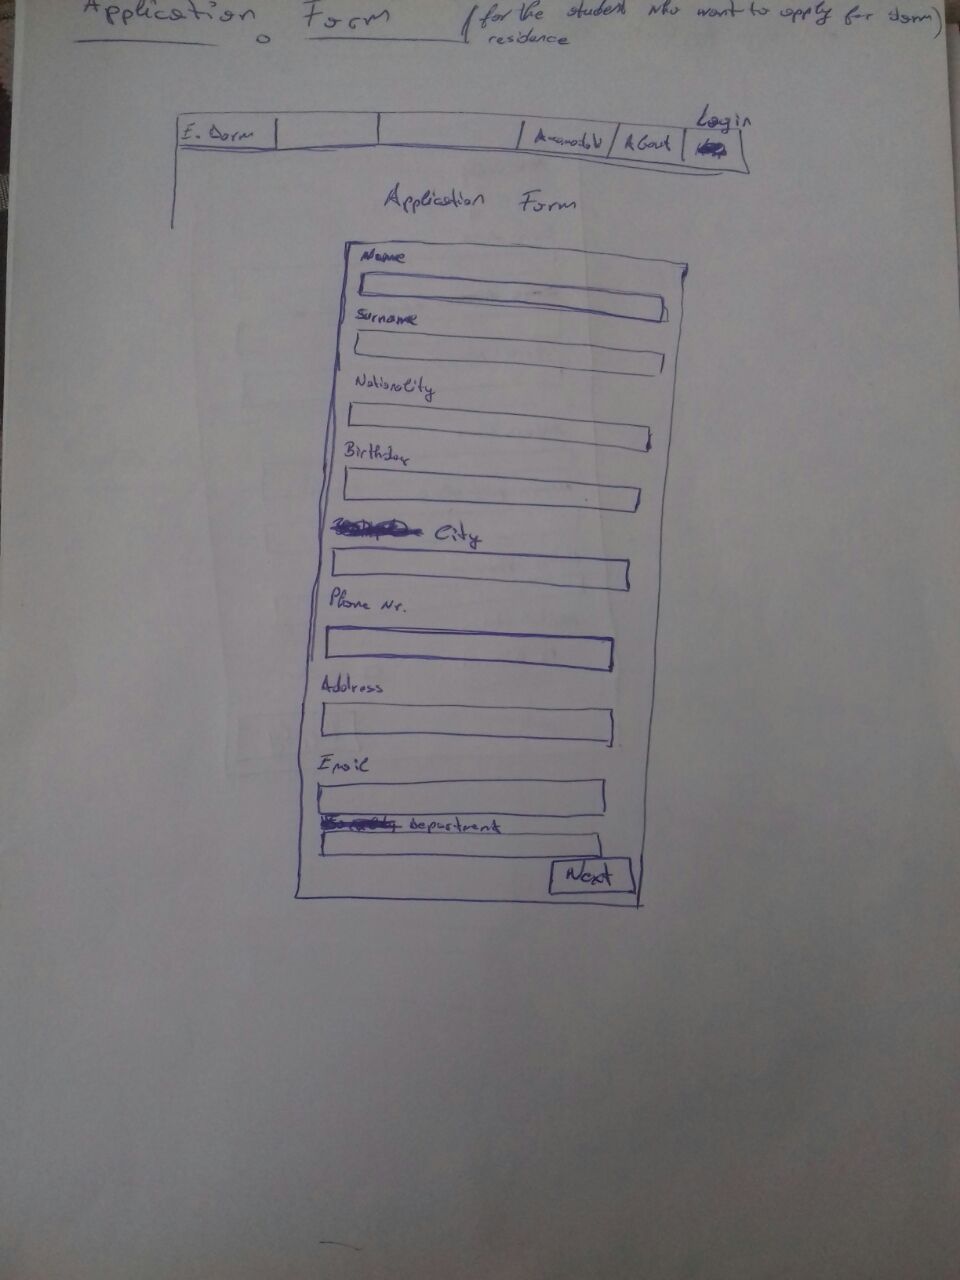 Application Form (for the student who want to apply for dorm)
residence
Login
E. Dorm About
Application Form
Name
Surname
Nationality
Birthday
City
Phone Nr.
Address
Email
department
Next